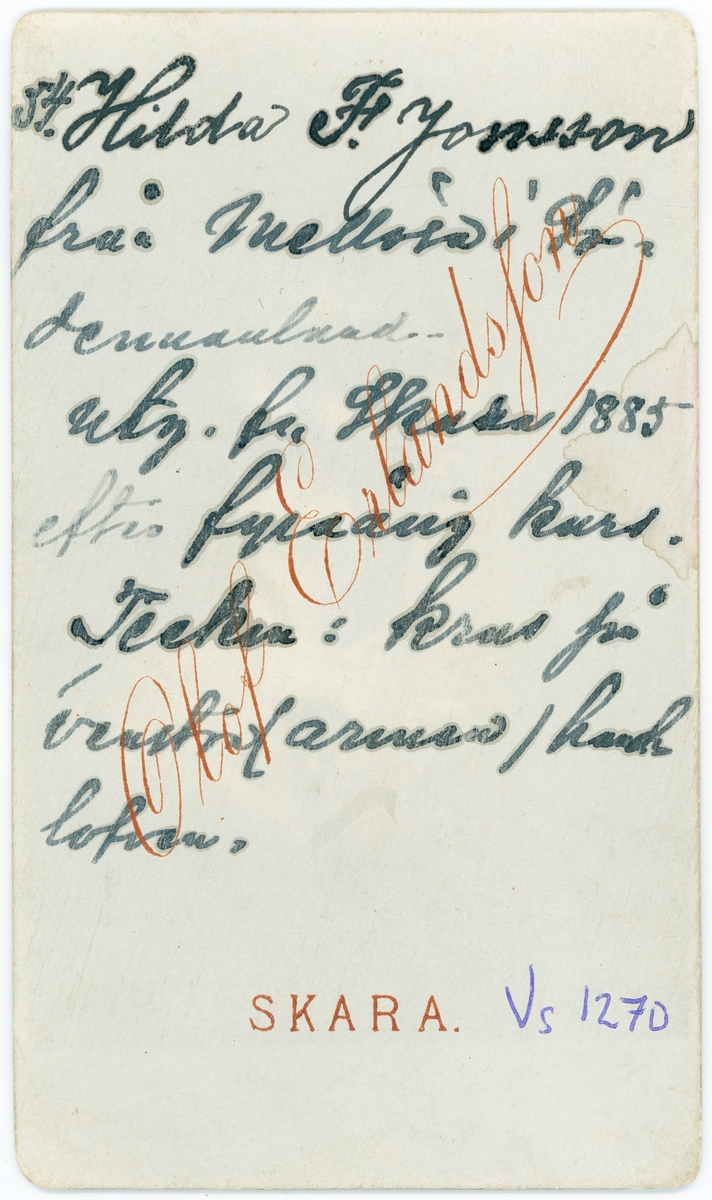 54. Hilda F. Jonsson
från Mellösa i Sö-
dermanland -
utg. fr. Skara 1885
efter fyraårig kurs.
Tecken: krus på
venstra (armen) hand-
lofven.
Olof Erlandsson
SKARA.
Vs 1270